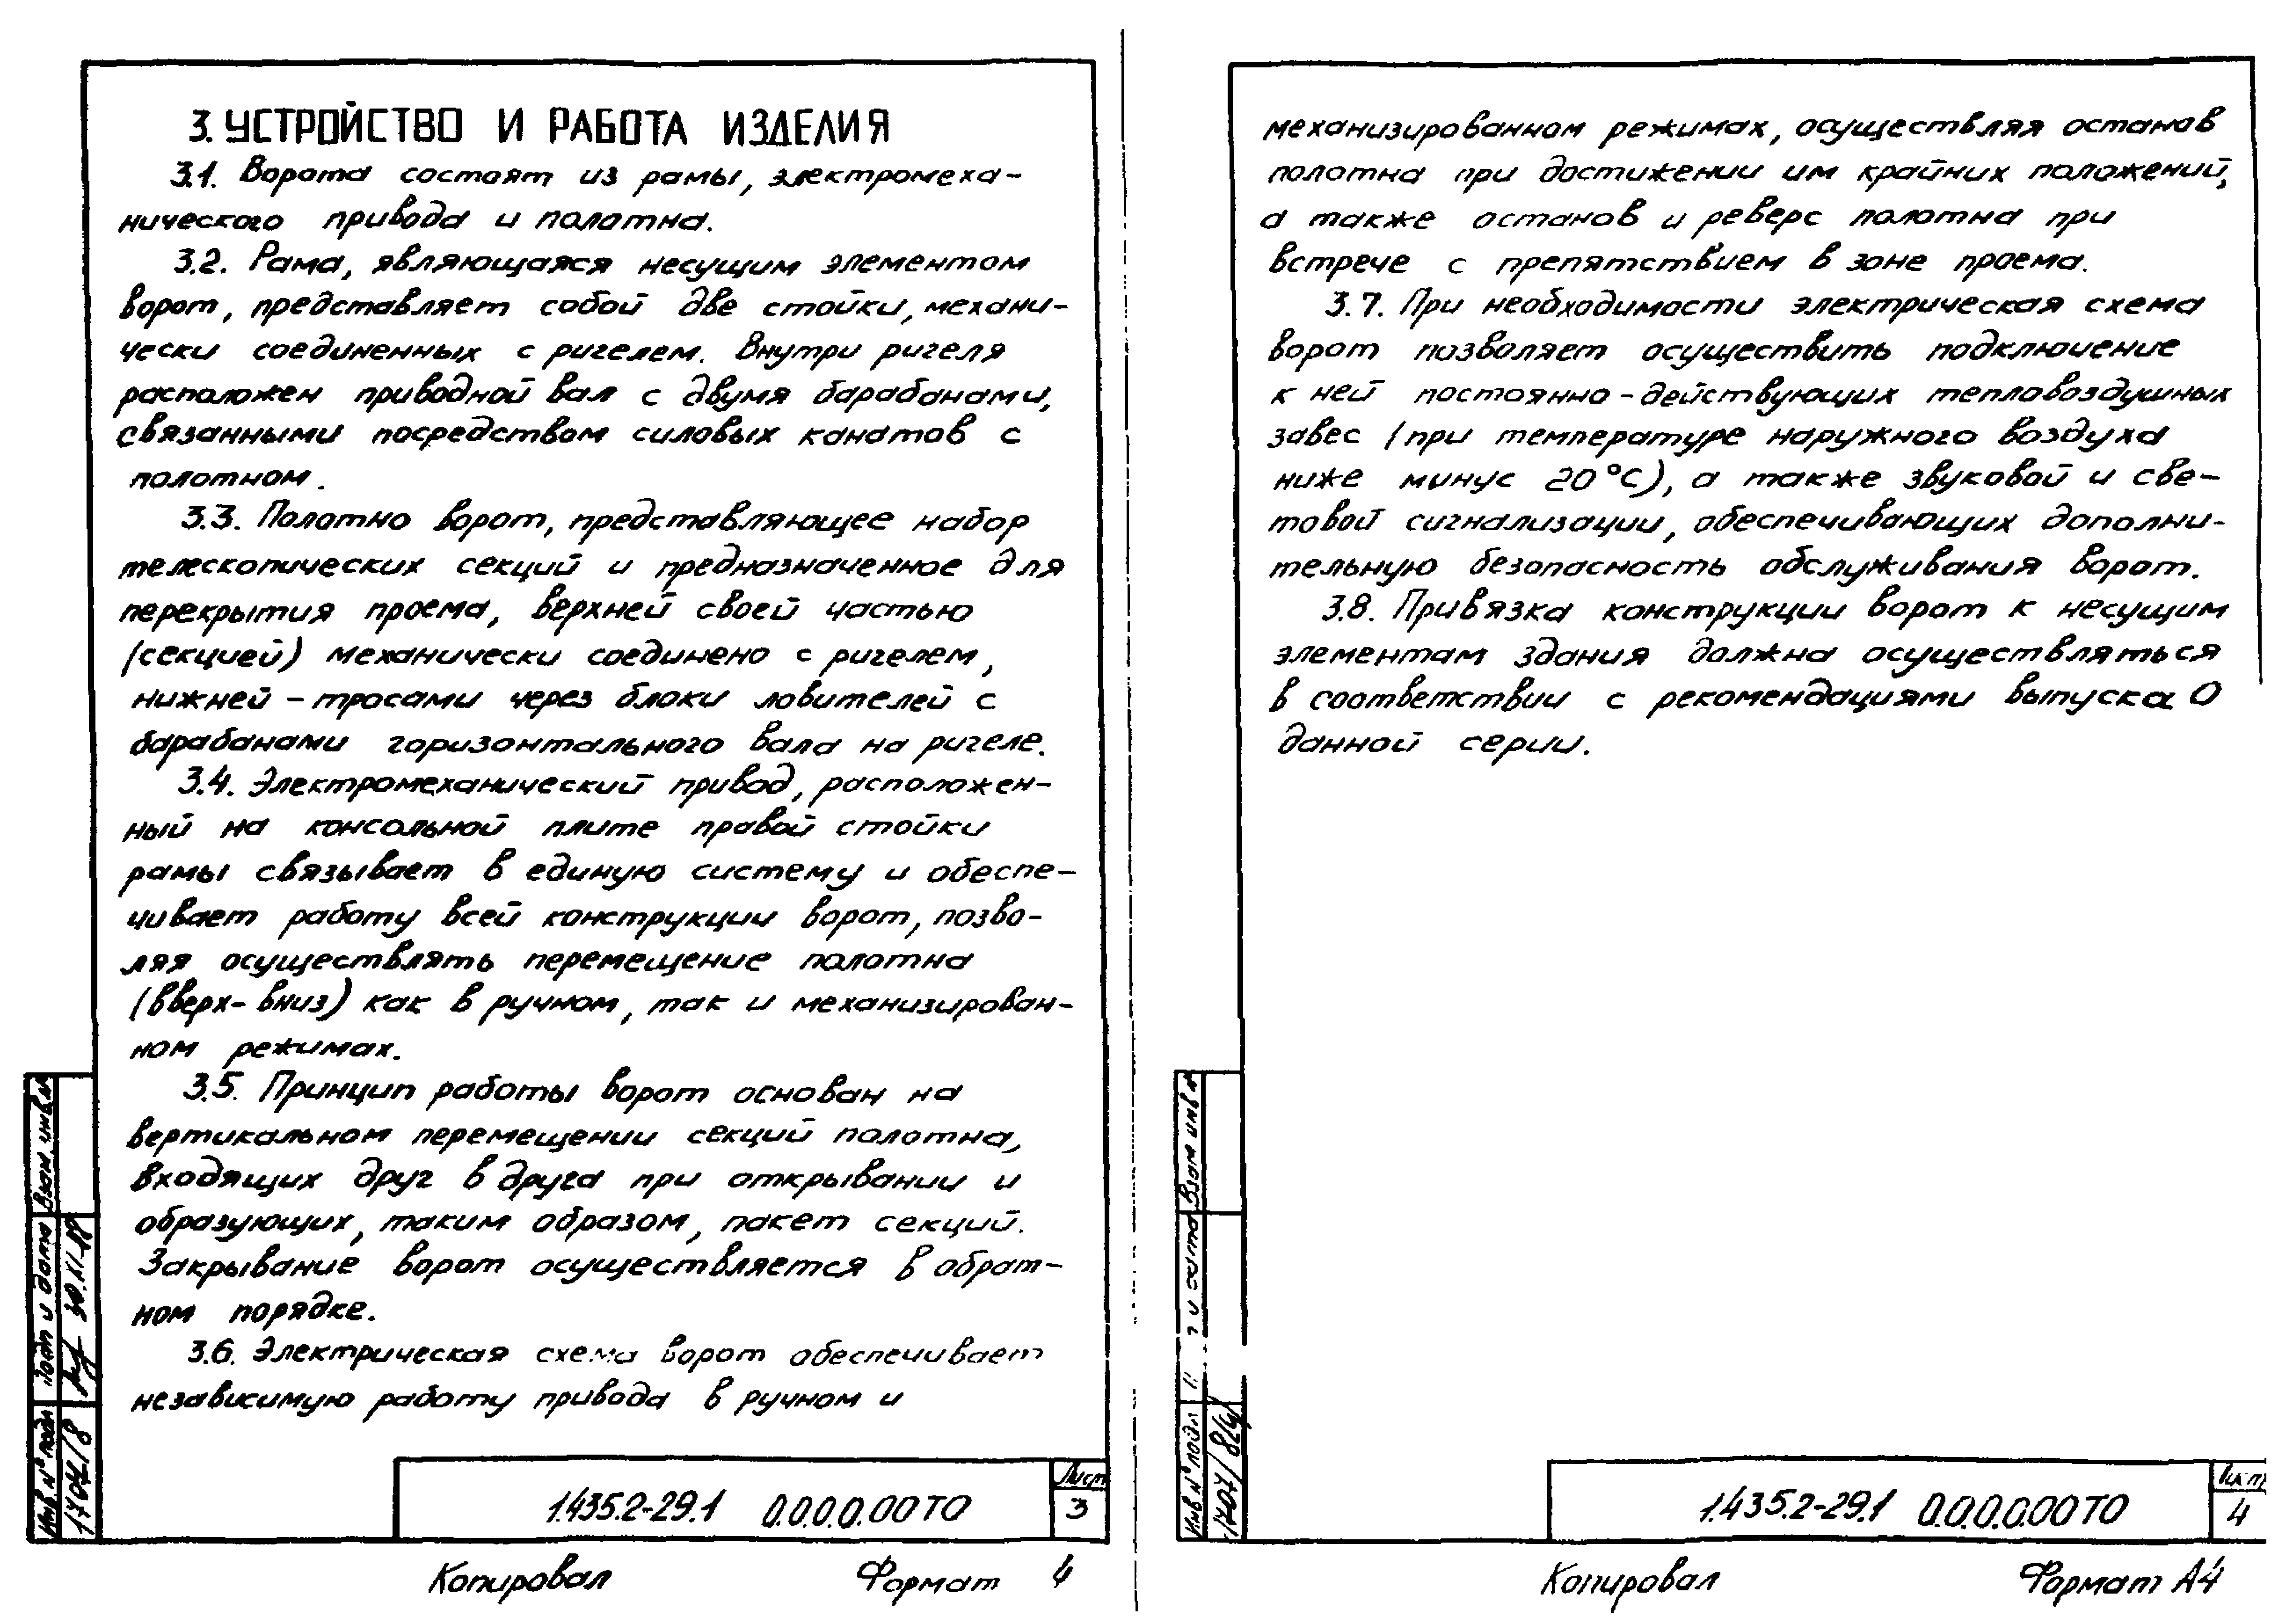 3. УСТРОЙСТВО И РАБОТА ИЗДЕЛИЯ
3.1. Ворота состоят из рамы, электромеха-
нического привода и полотна.
3.2. Рама, являющаяся несущим элементом
ворот, представляет собой две стойки, механи-
чески соединенных с ригелем. Внутри ригеля
расположен приводной вал с двумя барабанами,
связанными посредством силовых канатов с
полотном.
3.3. Полотно ворот, представляющее набор
телескопических секций и предназначенное для
перекрытия проема, верхней своей частью
(секцией) механически соединено с ригелем,
нижней - тросами через блоки ловителей с
барабанами горизонтального вала на ригеле.
3.4. Электромеханический привод, расположен-
ный на консольной плите правой стойки
рамы связывает в единую систему и обеспе-
чивает работу всей конструкции ворот, позво-
ляя осуществлять перемещение полотна
(вверх-вниз) как в ручном, так и механизирован-
ном режимах.
3.5. Принцип работы ворот основан на
вертикальном перемещении секций полотна,
входящих друг в друга при открывании и
образующих, таким образом, пакет секций.
Закрывание ворот осуществляется в обрат-
ном порядке.
3.6. Электрическая схема ворот обеспечивает
независимую работу привода в ручном и
Взам. инв.№
Подп и дата
Инв.№ подл
1.435.2-29.1 0.0.0.0.00ТО
Лист
3
Копировал
Формат 4
механизированном режимах, осуществляя останов
полотна при достижении им крайних положений,
а также останов и реверс полотна при
встрече с препятствием в зоне проема.
3.7. При необходимости электрическая схема
ворот позволяет осуществить подключение
к ней постоянно-действующих тепловоздушных
завес (при температуре наружного воздуха
ниже минус 20°С), а также звуковой и све-
товой сигнализации, обеспечивающих дополни-
тельную безопасность обслуживания ворот.
3.8. Привязка конструкции ворот к несущим
элементам здания должна осуществляться
в соответствии с рекомендациями выпуска 0
данной серии.
Взам инв №
Инв №подл
1.435.2-29.1 0.0.0.0.00ТО
Лист
4
Копировал
Формат А4